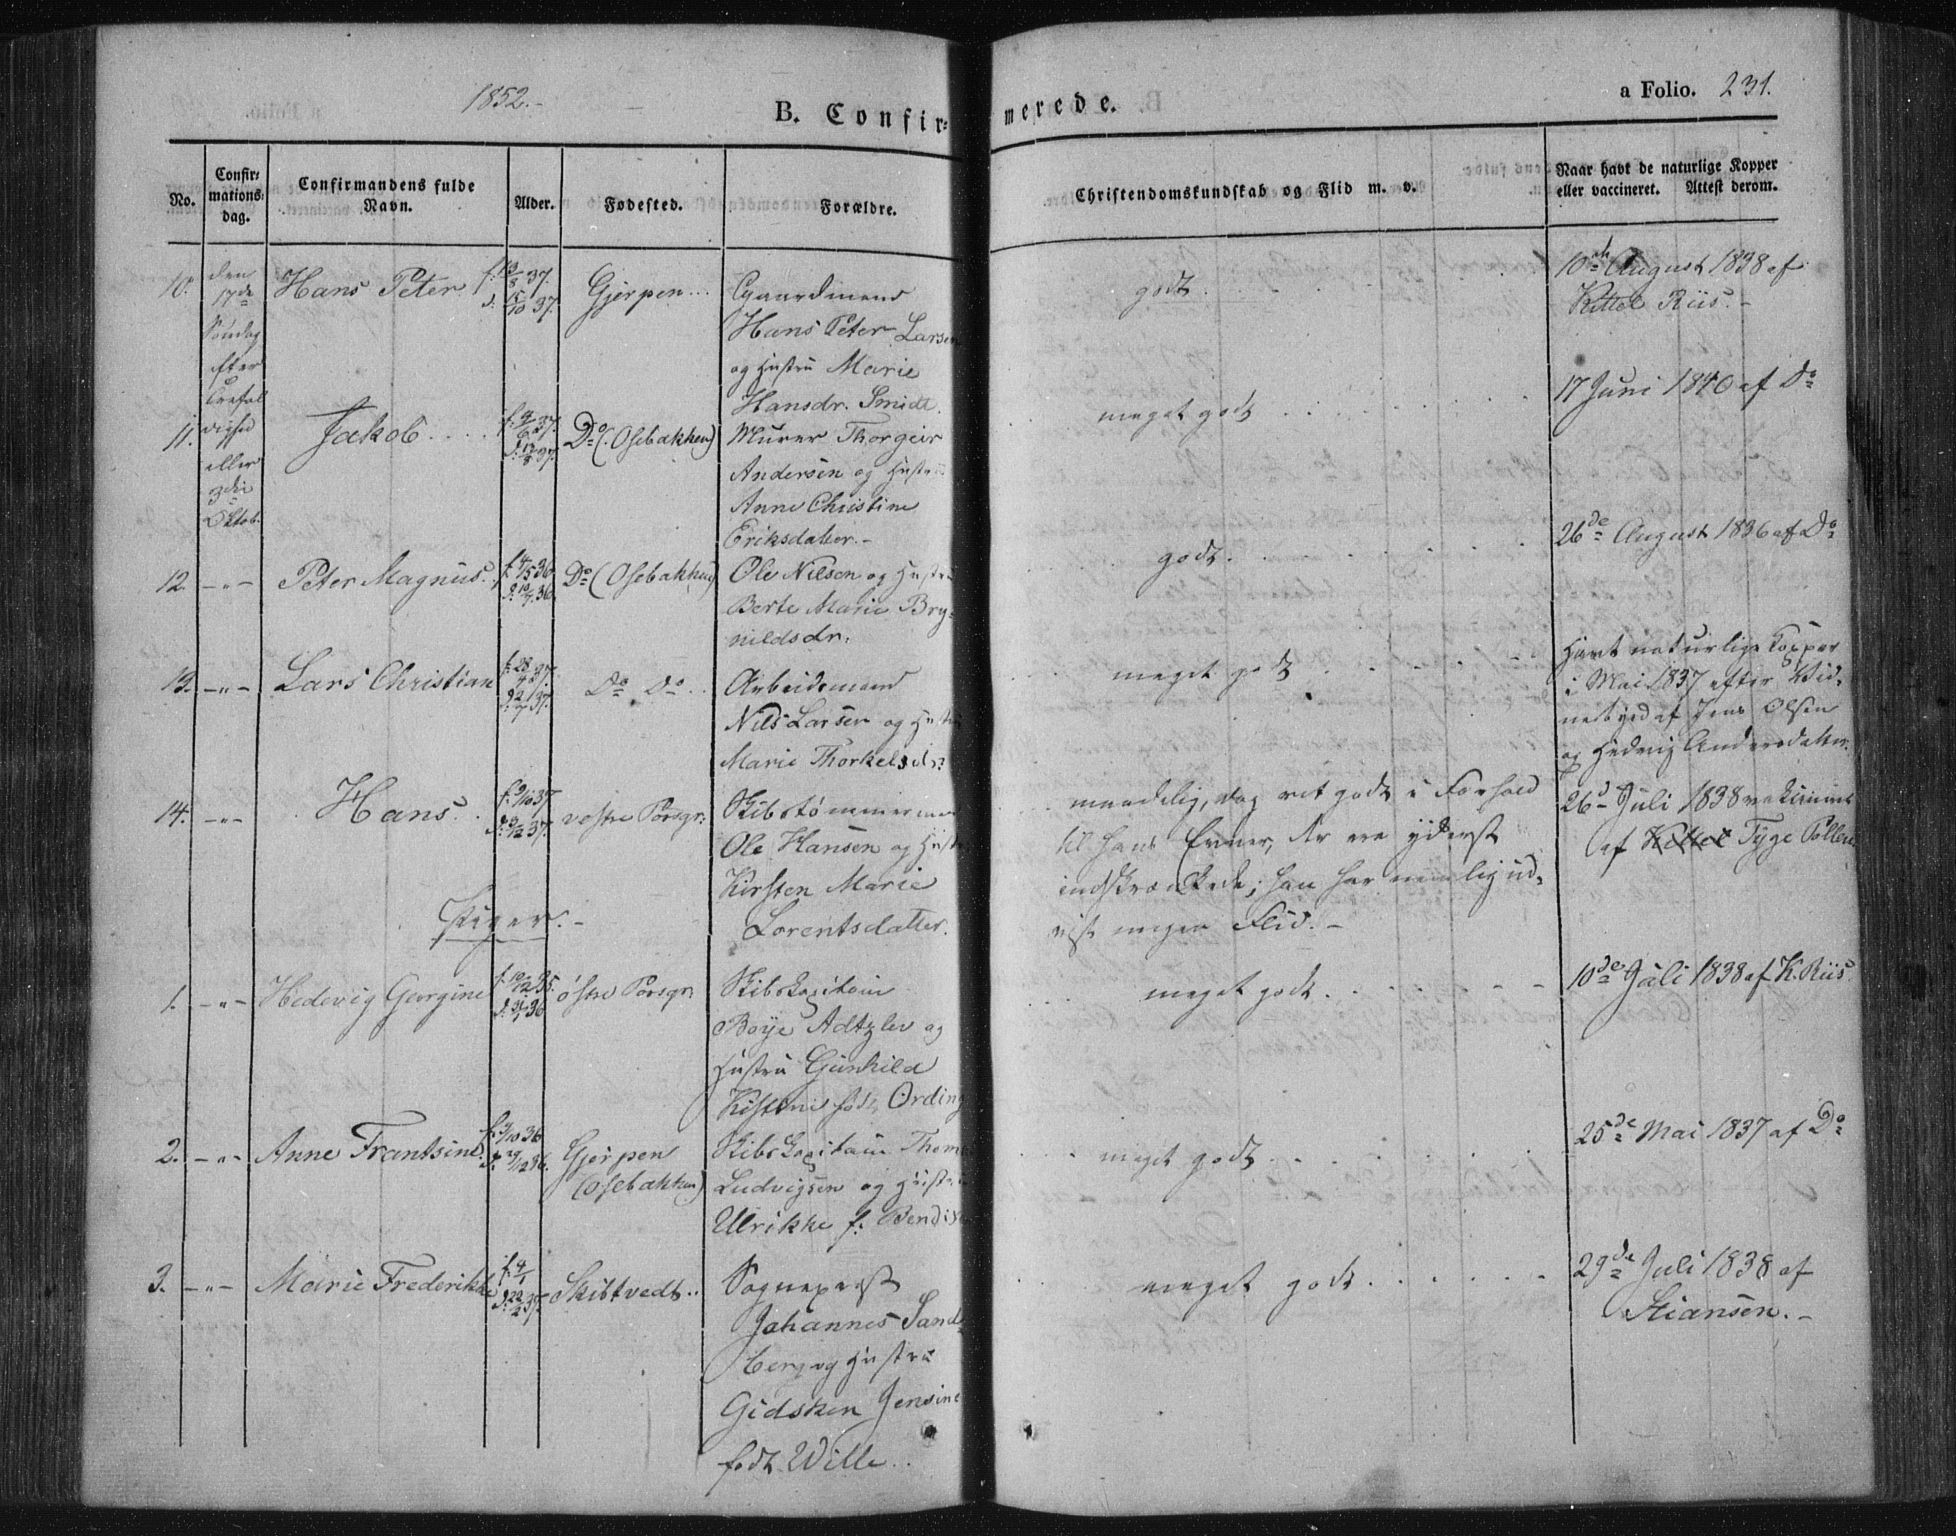 1852.-
B. Confir=
merede.
a Folio. 231.
No.
Confir=
mations=
dag.
Confirmandens fulde
Navn.
Alder.
Fødested.
Forældre.
Christendomskundskab og Flid m. v.
Naar havt de naturlige Kopper
eller vaccineret. Attest derom.
10.
den
17de
Søndag
efter
Trefol
dighed
eller
3die
Oktob.
Hans Peter
f. 13/8 37.
d. 15/10 37.
Gjerpen...
Gaardmand
Hans Peter Larsen
og Hustru Marie
Hansdr. Smidt.
godt.
10de August 1838 af
Kittel Riis.-
11.
Jakob....
37.
37.
Do (Osebakken)
Murer Thorgeir
Andersen og Hustru
Anne Christine
Eriksdatter.-
meget godt
17 Juni 1840 af Do
12. -"-
Peter Magnus.
f. 4/5 36
d. 10/7 36.
Do (Osebakken)
Ole Nilsen og Hustru
Berte Marie Bry=
nildsdr.
godt.
26de August 1836 af Do
13. -"-
Lars Christian
f. 28/4 37.
d. 2/7 37.
Do Do..
Arbeidsmand
Nils Larsen og Hustru
Marie Thorkelsdr.
meget godt
Havt naturlige Kopper
i Mai 1837 efter Vid=
nesbyrd af Jens Olsen
og Hedvig Andersdatter.
14. -"-
Hans.
f. 9/10 37
d. 3/12 37.
vestre Porsgr.
Skibstømmermand
Ole Hansen og Hustru
Kirsten Marie
Lorentsdatter.
maadelig, dog ret godt i Forhold
til hans Evner, der ere yderst
indskrænkede; han har nemlig ud=
vist megen Flid.-
26d Juli 1838 vakcineret
af Kittel Tyge Pollen
Piger.-
1. -"-
Hedevig Georgine
f. 10/12 35.
d. 31/1 36
østre Porsgr.
Skibskapitain
Boye Adtzlev og
Hustru Gunhild
Kistine født Ording
meget godt.
10de Juli 1838 af K. Riis
2. -"-
Anne Frantsine.
f. 3/10 36
36.
Gjerpen
(Osebakken)
Skibskapitain Thom
Ludvigsen og Hustru
Ulrikke f. Bendixen
meget godt.
25de Mai 1837 af Do
3. -"-
Marie Frederikke
f. 4/1
d. 22/2 37.
Skibtvedt..
Sogneprest
Johannes Sand=
berg og Hustru
Gidsken Jensine
født Wille..
meget godt.
29de Juli 1838 af
Stiansen.-